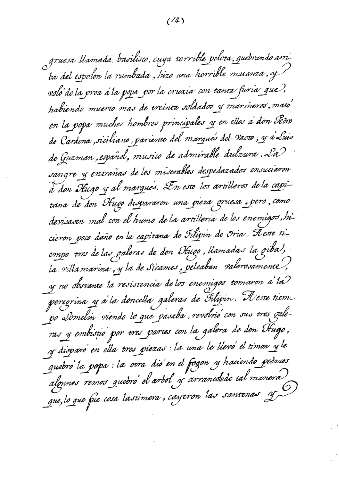 (14)
gruesa llamada basilisco, cuya terrible pelota, quebrando arri
ba del espolon la rumbada, hizo una horrible matanza, y
voló de la proa á la popa por la cruxia con tanta furia que,
habiendo muerto mas de treinta soldados y marineros, mató
en la popa muchos hombres principales y en ellos á don Pedro
de Cardona, siciliano, pariente del marqués del Vasto, y á Luis
de Guzman, español, musico de admirable dulzura. La
sangre y entrañas de los miserables despedazados ensuciaron
á don Hugo y al marqués. En esto los artilleros de la capi
tana de don Hugo dispararon una pieza gruesa, pero, como
deviasen mal con el humo de la artilleria de los enemigos, hi
cieron poco daño en la capitana de Filipin de Oria. A este ti
empo tres de las galeras de don Hugo, llamadas la gibal,
la villamarina, y la de Sicames, peleaban valerosamente,
y no obstante la resistencia de los enemigos tomaron á la
peregrina y á la doncella galeras de Filipin. A este tiem
po Lomelin viendo lo que pasaba, revolvió con sus tres gale
ras y embistió por tres partes con la galera de don Hugo,
y disparó en ella tres piezas: la una le llevó el timon y le
quebró la popa: la otra dió en el fogon y haciendo pedazos
algunos remos quebró el arbol y arrancóle de tal manera
que, lo que fue cosa lastimera, cayeron las santenas y